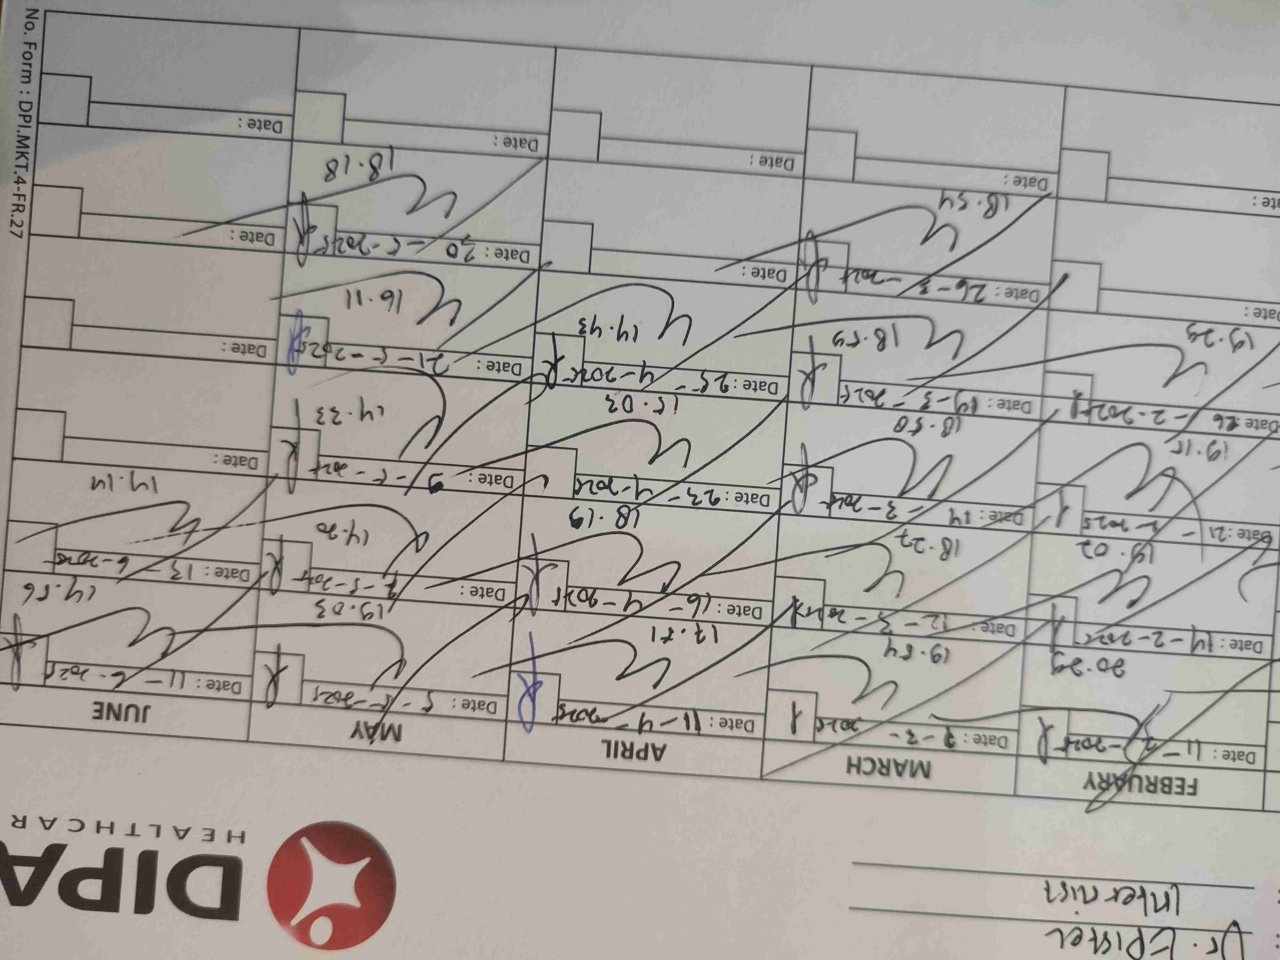 Dr. Epistel
Internist
DIPA
HEALTHCAR
FEBRUARY MARCH APRIL MAY JUNE
Date: 11-2-2025 Date: 7-3-2025 Date: 11-4-2025 Date: 5-5-2025 Date: 11-6-2025
20.29 19.54 17.51 19.03 14.56
Date: 14-2-2025 Date: 12-3-2025 Date: 16-4-2025 Date: 7-5-2025 Date: 13-6-2025
19.02 18.27 18.19 14.20 14.14
Date: 21-2-2025 Date: 14-3-2025 Date: 23-4-2025 Date: 9-5-2025 Date:
19.15 18.50 15.03 14.33
Date: 26-2-2025 Date: 19-3-2025 Date: 25-4-2025 Date: 21-5-2025 Date:
19.29 18.59 14.43 16.11
Date: Date: 26-3-2025 Date: Date: 20-5-2025 Date:
18.54 18.18
Date: Date: Date: Date: Date:
No. Form : DPI.MKT.4-FR.27